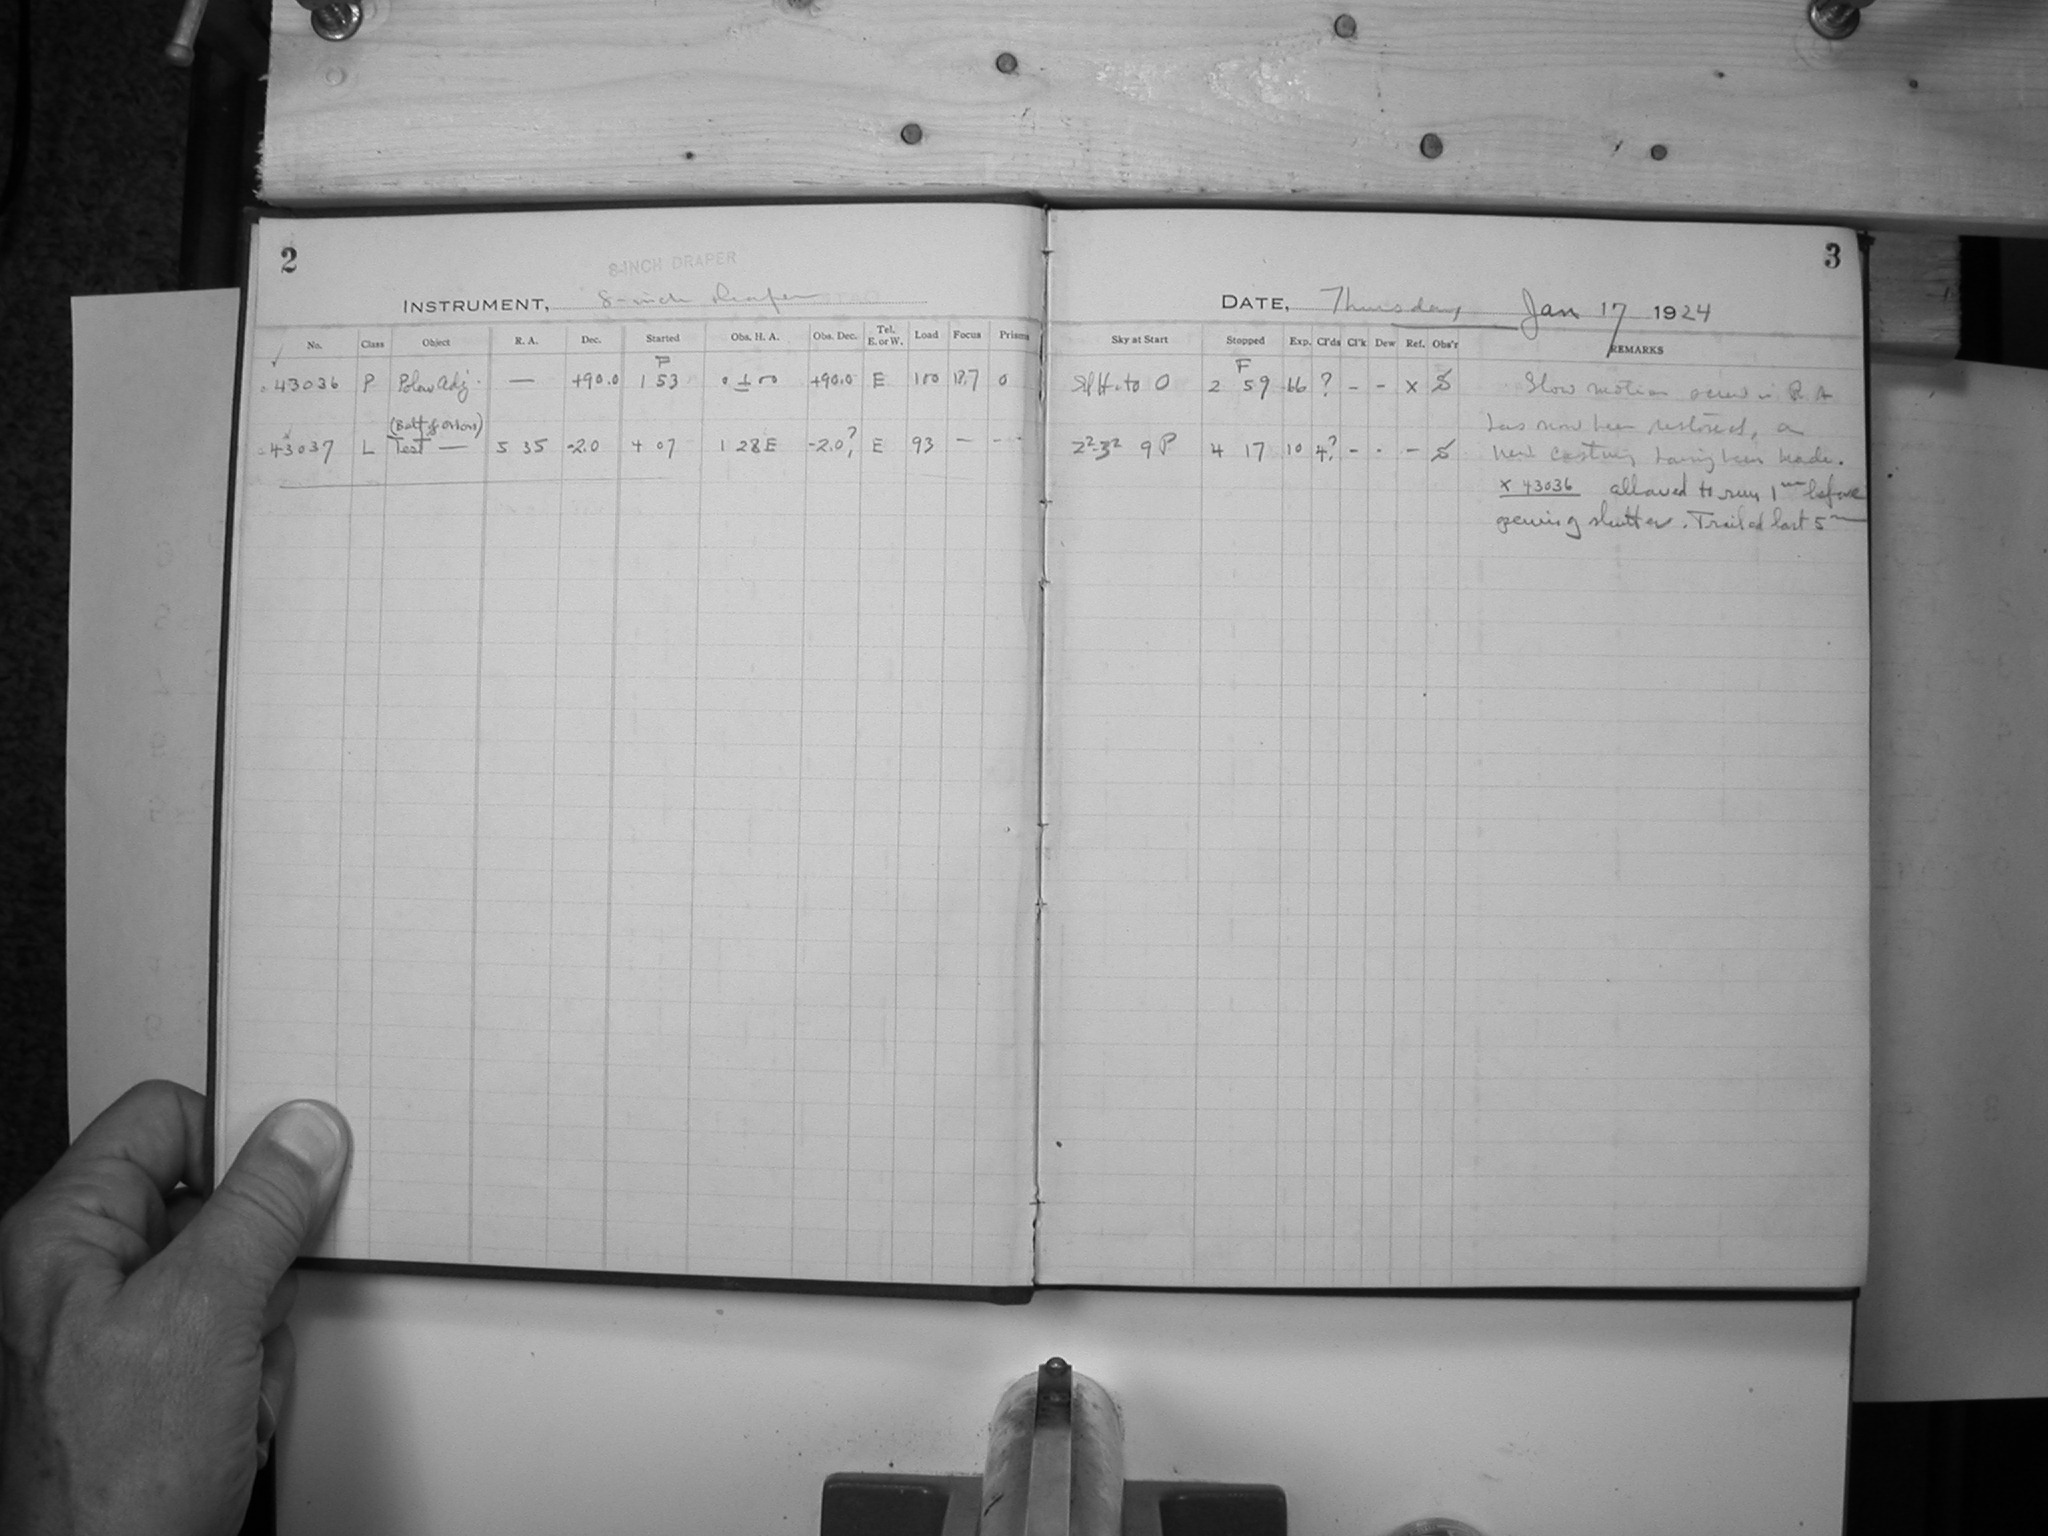 2
8-INCH DRAPER
INSTRUMENT, 8-inch Draper
No. Class Object R. A. Dec. Started Obs. H. A. Obs. Dec. Tel. E. or W. Load Focus Prisms
43036 P Polar Adj. — +90.0 1 53 0 ± 00 +90.0 E 100 18.7 0
(Belt of Orion)
43037 L Test — 5 35 -2.0 4 07 1 28 E -2.0? E 93 — —
3
DATE, Thursday Jan 17 1924
Sky at Start Stopped Exp. Cl'ds Cl'k Dew Ref. Obs'r REMARKS
F
to 0 2 59 66 ? - - x S
2²-3² 9 P 4 17 10 4? - - - S
Slow motion screw in R A
has now been restored, a
new casting having been made.
x 43036 allowed to run 1m before
opening shutter. Trailed last 5m